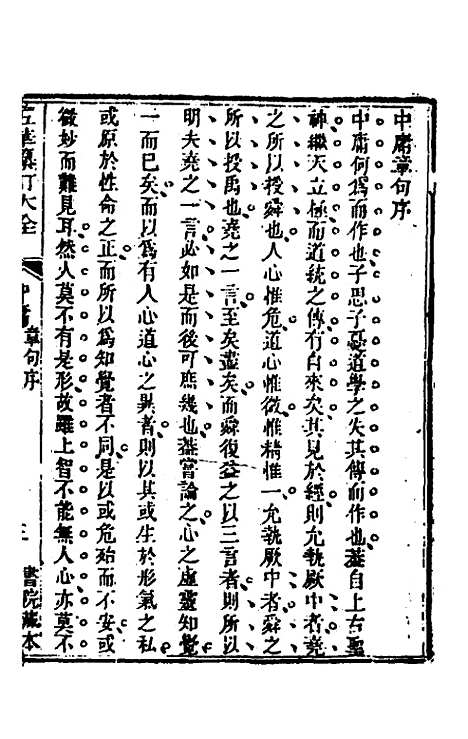 中庸章句序
中庸何爲而作也子思子憂道學之失其傳而作也蓋自上古聖
神繼天立極而道統之傳有自來矣其見於經則允執厥中者堯
之所以授舜也人心惟危道心惟微惟精惟一允執厥中者舜之
所以授禹也堯之一言至矣盡矣而舜復益之以三言者則所以
明夫堯之一言必如是而後可庶幾也蓋嘗論之心之虛靈知覺
一而已矣而以爲有人心道心之異者則以其或生於形氣之私
或原於性命之正而所以爲知覺者不同是以或危殆而不安或
微妙而難見耳然人莫不有是形故雖上智不能無人心亦莫不
五華纂訂大全 中庸章句序 書院藏本